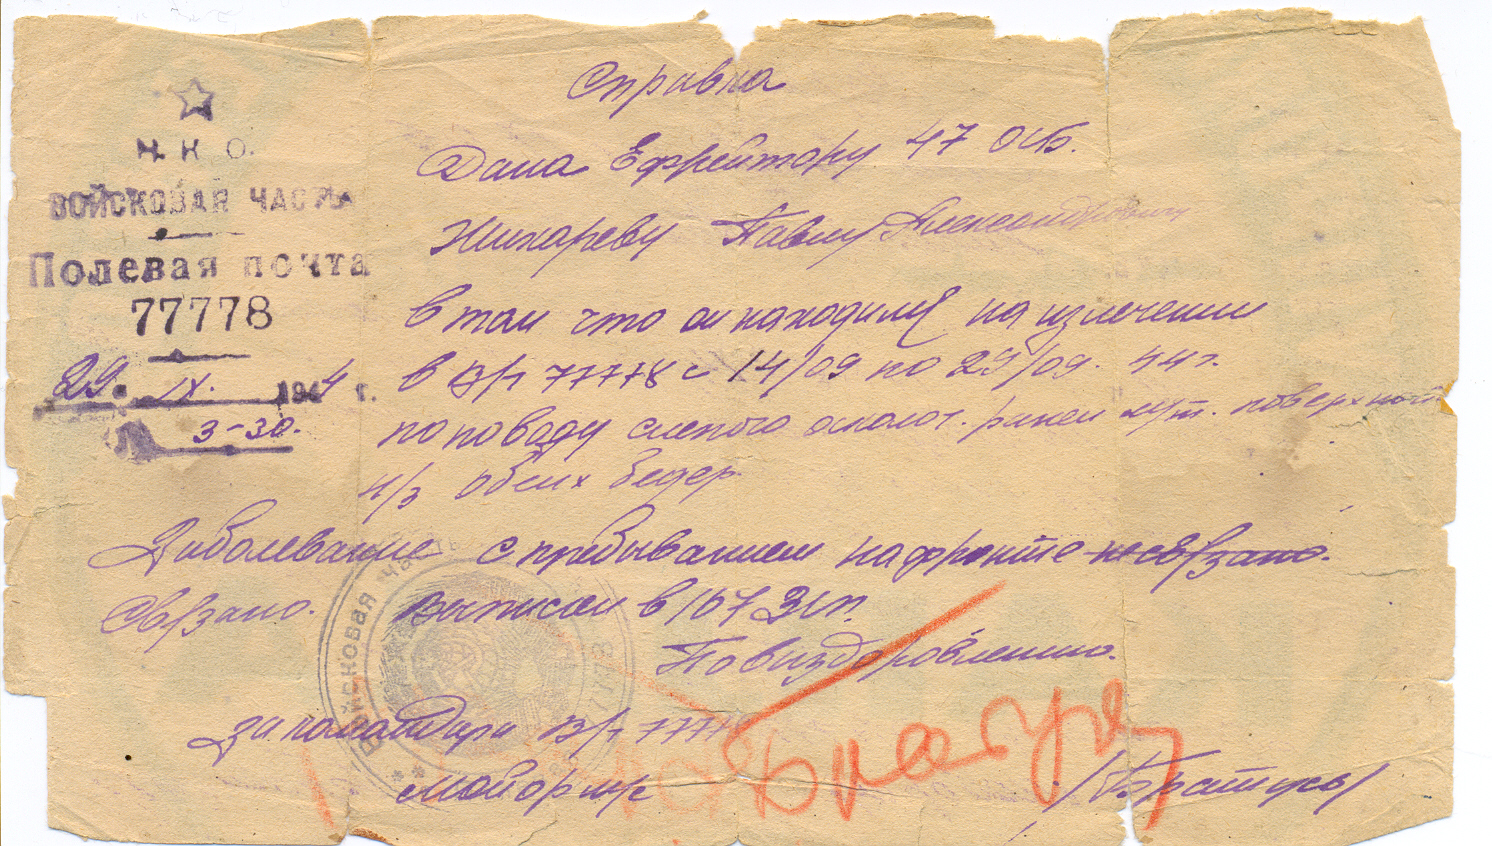 Н. К О.
ВОЙСКОВАЯ ЧАСТЬ
Полевая почта
77778
29. IX. 1944 г.
3-30.
Справка
Дана Ефрейтору 47 ОСБ.
Жихареву Павлу Александровичу
в том что он находился на излечении
в в/ч 77778 с 14/09 по 29/09. 44 г.
по поводу слепого осколоч. ранен. поверхности
н/з обеих бедер.
Заболевание с пребыванием на фронте не связано.
Связано. Выписан в 167 ЗСП.
По выздоровлению.
За командира в/ч 77778
Майор м/с /Братусь/
ВОЙСКОВАЯ ЧАСТЬ